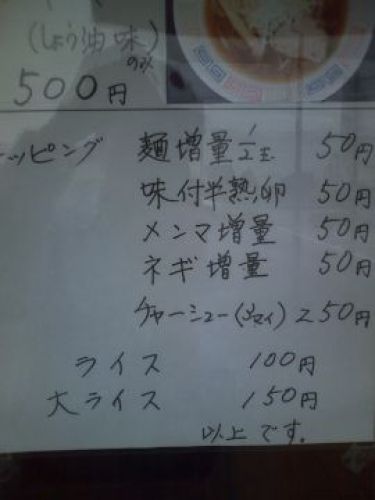 (しょう油味)のみ
500円
ッピング 麺増量1玉 50円
味付半熟卵 50円
メンマ増量 50円
ネギ増量 50円
チャーシュー(2マイ) 250円
ライス 100円
大ライス 150円
以上です。